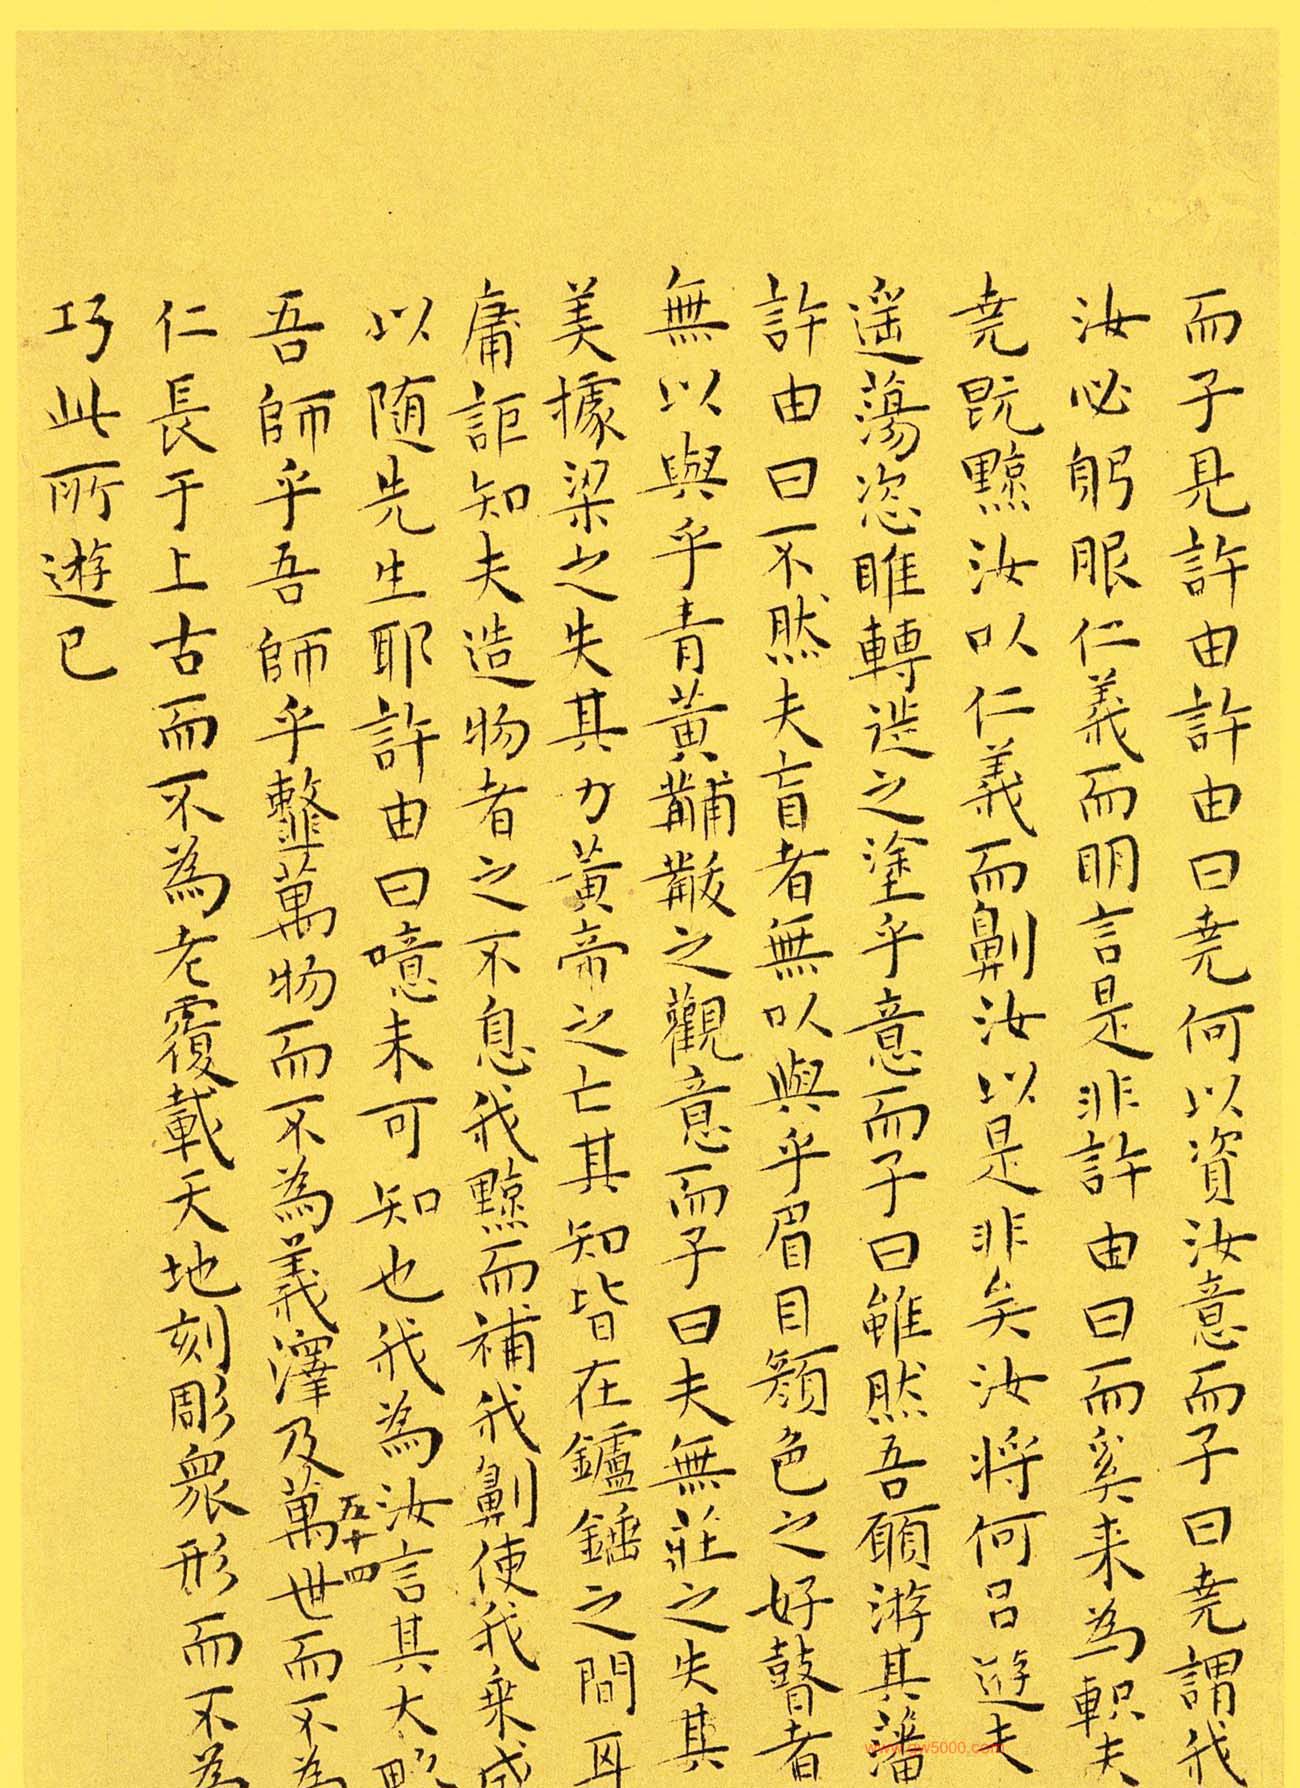 而子見許由許由曰尭何以資汝意而子曰尭謂我
汝必躬服仁義而明言是非許由曰而奚来為軹夫
尭既黥汝以仁義而劓汝以是非矣汝将何吕遊夫
遥蕩恣睢轉徙之塗乎意而子曰雖然吾願游其藩
許由曰不然夫盲者無以與乎眉目顔色之好瞽者
無以與乎青黄黼黻之觀意而子曰夫無莊之失其
美據梁之失其力黄帝之亡其知皆在鑪錘之間耳
庸詎知夫造物者之不息我黥而補我劓使我乗成
以随先生耶許由曰噫未可知也我為汝言其大略
五十四
吾師乎吾師乎韲萬物而不為義澤及萬世而不為
仁長于上古而不為老覆載天地刻彫衆形而不為
巧此所遊已
www.gw5000.com